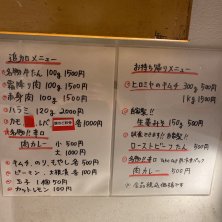 追加メニュー
名物牛たん 100g 1500円
霜降り肉 100g 1500円
赤身肉 100g 1500円
ハラミ 120g 2000円
カモ 各1000円
名物!!辛口
肉カレー 500円
キムチ、のり、もやし 各500円
ピーマン、大根 各100円
玉子 1個 50円
カットレモン 100円
お持ち帰りメニュー
ヒロミヤのキムチ 300g 500円
1kg 1500円
自家製!!
生姜みそ 150g 500円
自家製!!
ローストビーフたん 500円
名物!!辛口
肉カレー 500円
※全品税込価格です